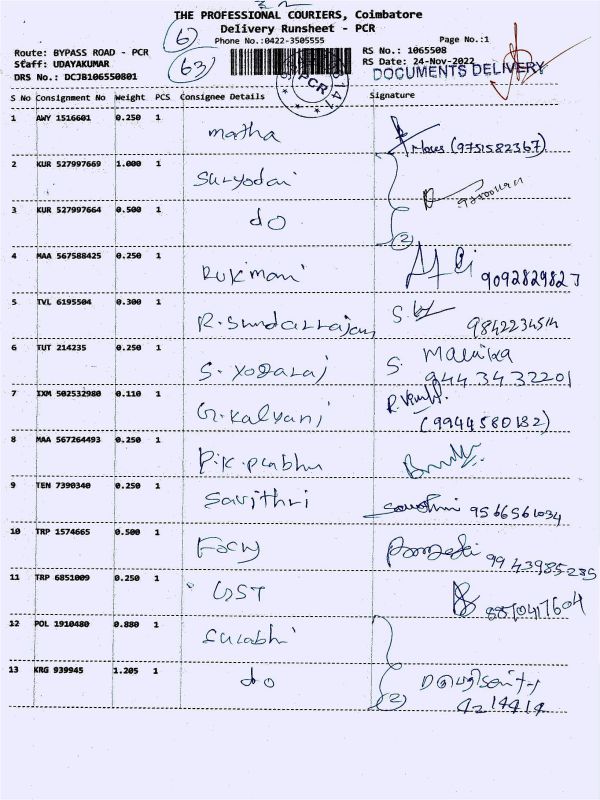 THE PROFESSIONAL COURIERS, Coimbatore
Delivery Runsheet - PCR
Phone No.:0422-3505555
Page No.:1
6
63
Route: BYPASS ROAD - PCR
RS No.: 1065508
Staff: UDAYAKUMAR
RS Date: 24-Nov-2022
DRS No.: DCJB106550801
DOCUMENTS DELIVERY
PCR
S No Consignment No Weight PCS Consignee Details Signature
1 AWY 1516601 0.250 1 martha (9751582367)
2 KUR 527997669 1.000 1 Suryodai
3 KUR 527997664 0.500 1 do (2)
4 MAA 567588425 0.250 1 Rukmani 9092829823
5 TVL 6195504 0.300 1 R. Sundarrajan S.
6 TUT 214235 0.250 1 S. Yogaraj S. Mallika
944 34 32201
7 IXM 502532980 0.110 1 G. Kalyani R.
(9944580132)
8 MAA 567264493 0.250 1 P.K. Prabhu
9 TEN 7390340 0.250 1 Savithri Savithri 9566561034
10 TRP 1574665 0.500 1 9943985235
11 TRP 6851009 0.250 1 GST 8870417604
12 POL 1910480 0.880 1 Surabhi
13 KRG 939945 1.205 1 do (2)
4214414